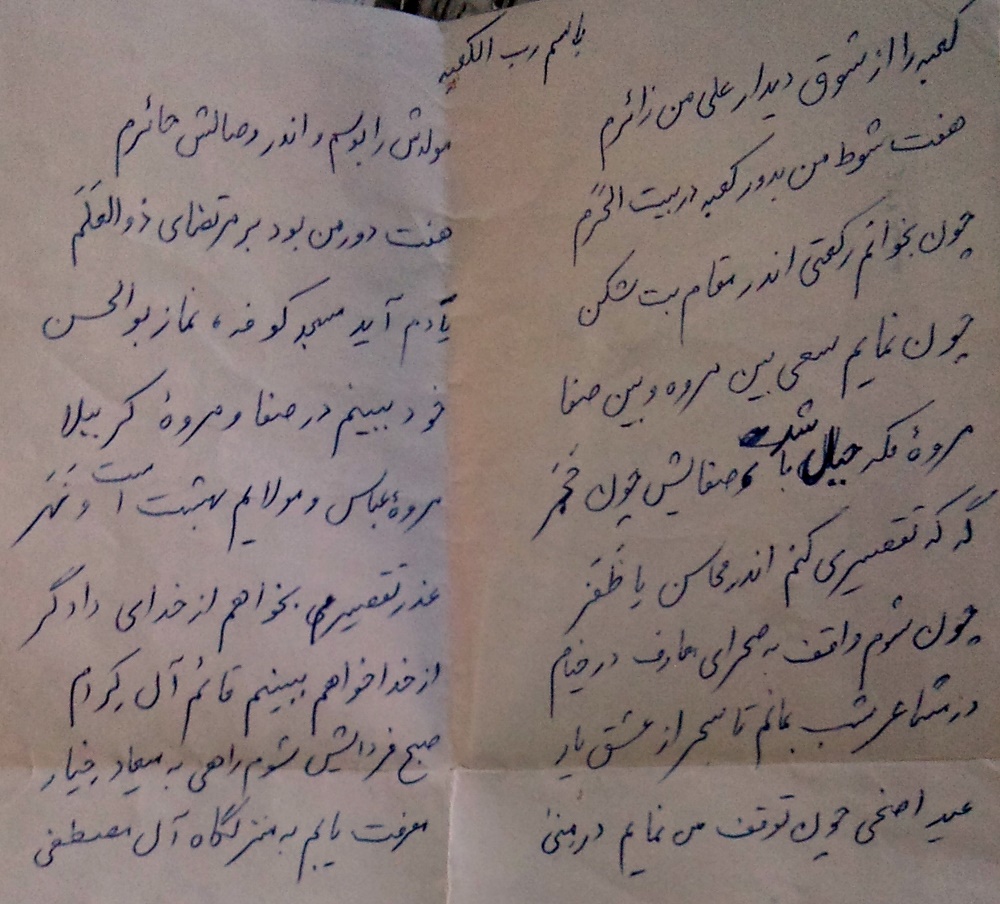 باسم رب الکعبه
کعبه را از شوق دیدار علی من زائرم
مولدش را بوسم و اندر وصالش حائرم
هفت شوط من بدور کعبه در بیت الحَرَم
هفت دور من بود بر مرتضای ذوالعَلَم
چون بخوانم رکعتی اندر مقام بت شکن
یادم آید مسجد کوفه، نماز بوالحسن
چون نمایم سعی بین مروه و بین صفا
خود ببینم در صفا و مروهٔ کربلا
مروهٔ مکه جبال با شد و صفایش چون
مروهٔ عباس و مولایم بهشت است و نَهَر
گه که تقصیری کنم اندر محاسن یا ظَفَر
عذر تقصیرم بخواهم از خدای دادگر
چون شوم واقف به صحرای معارف در خیام
از خدا خواهم ببینم قائم آل کِرام
در مشاعر شب بمانم تا سحر از عشق یار
صبح فردایش شوم راهی به میعاد
عید اضحی چون توقف من نمایم در منیٰ
معرفت یابم به منزلگاه آل مصطفی